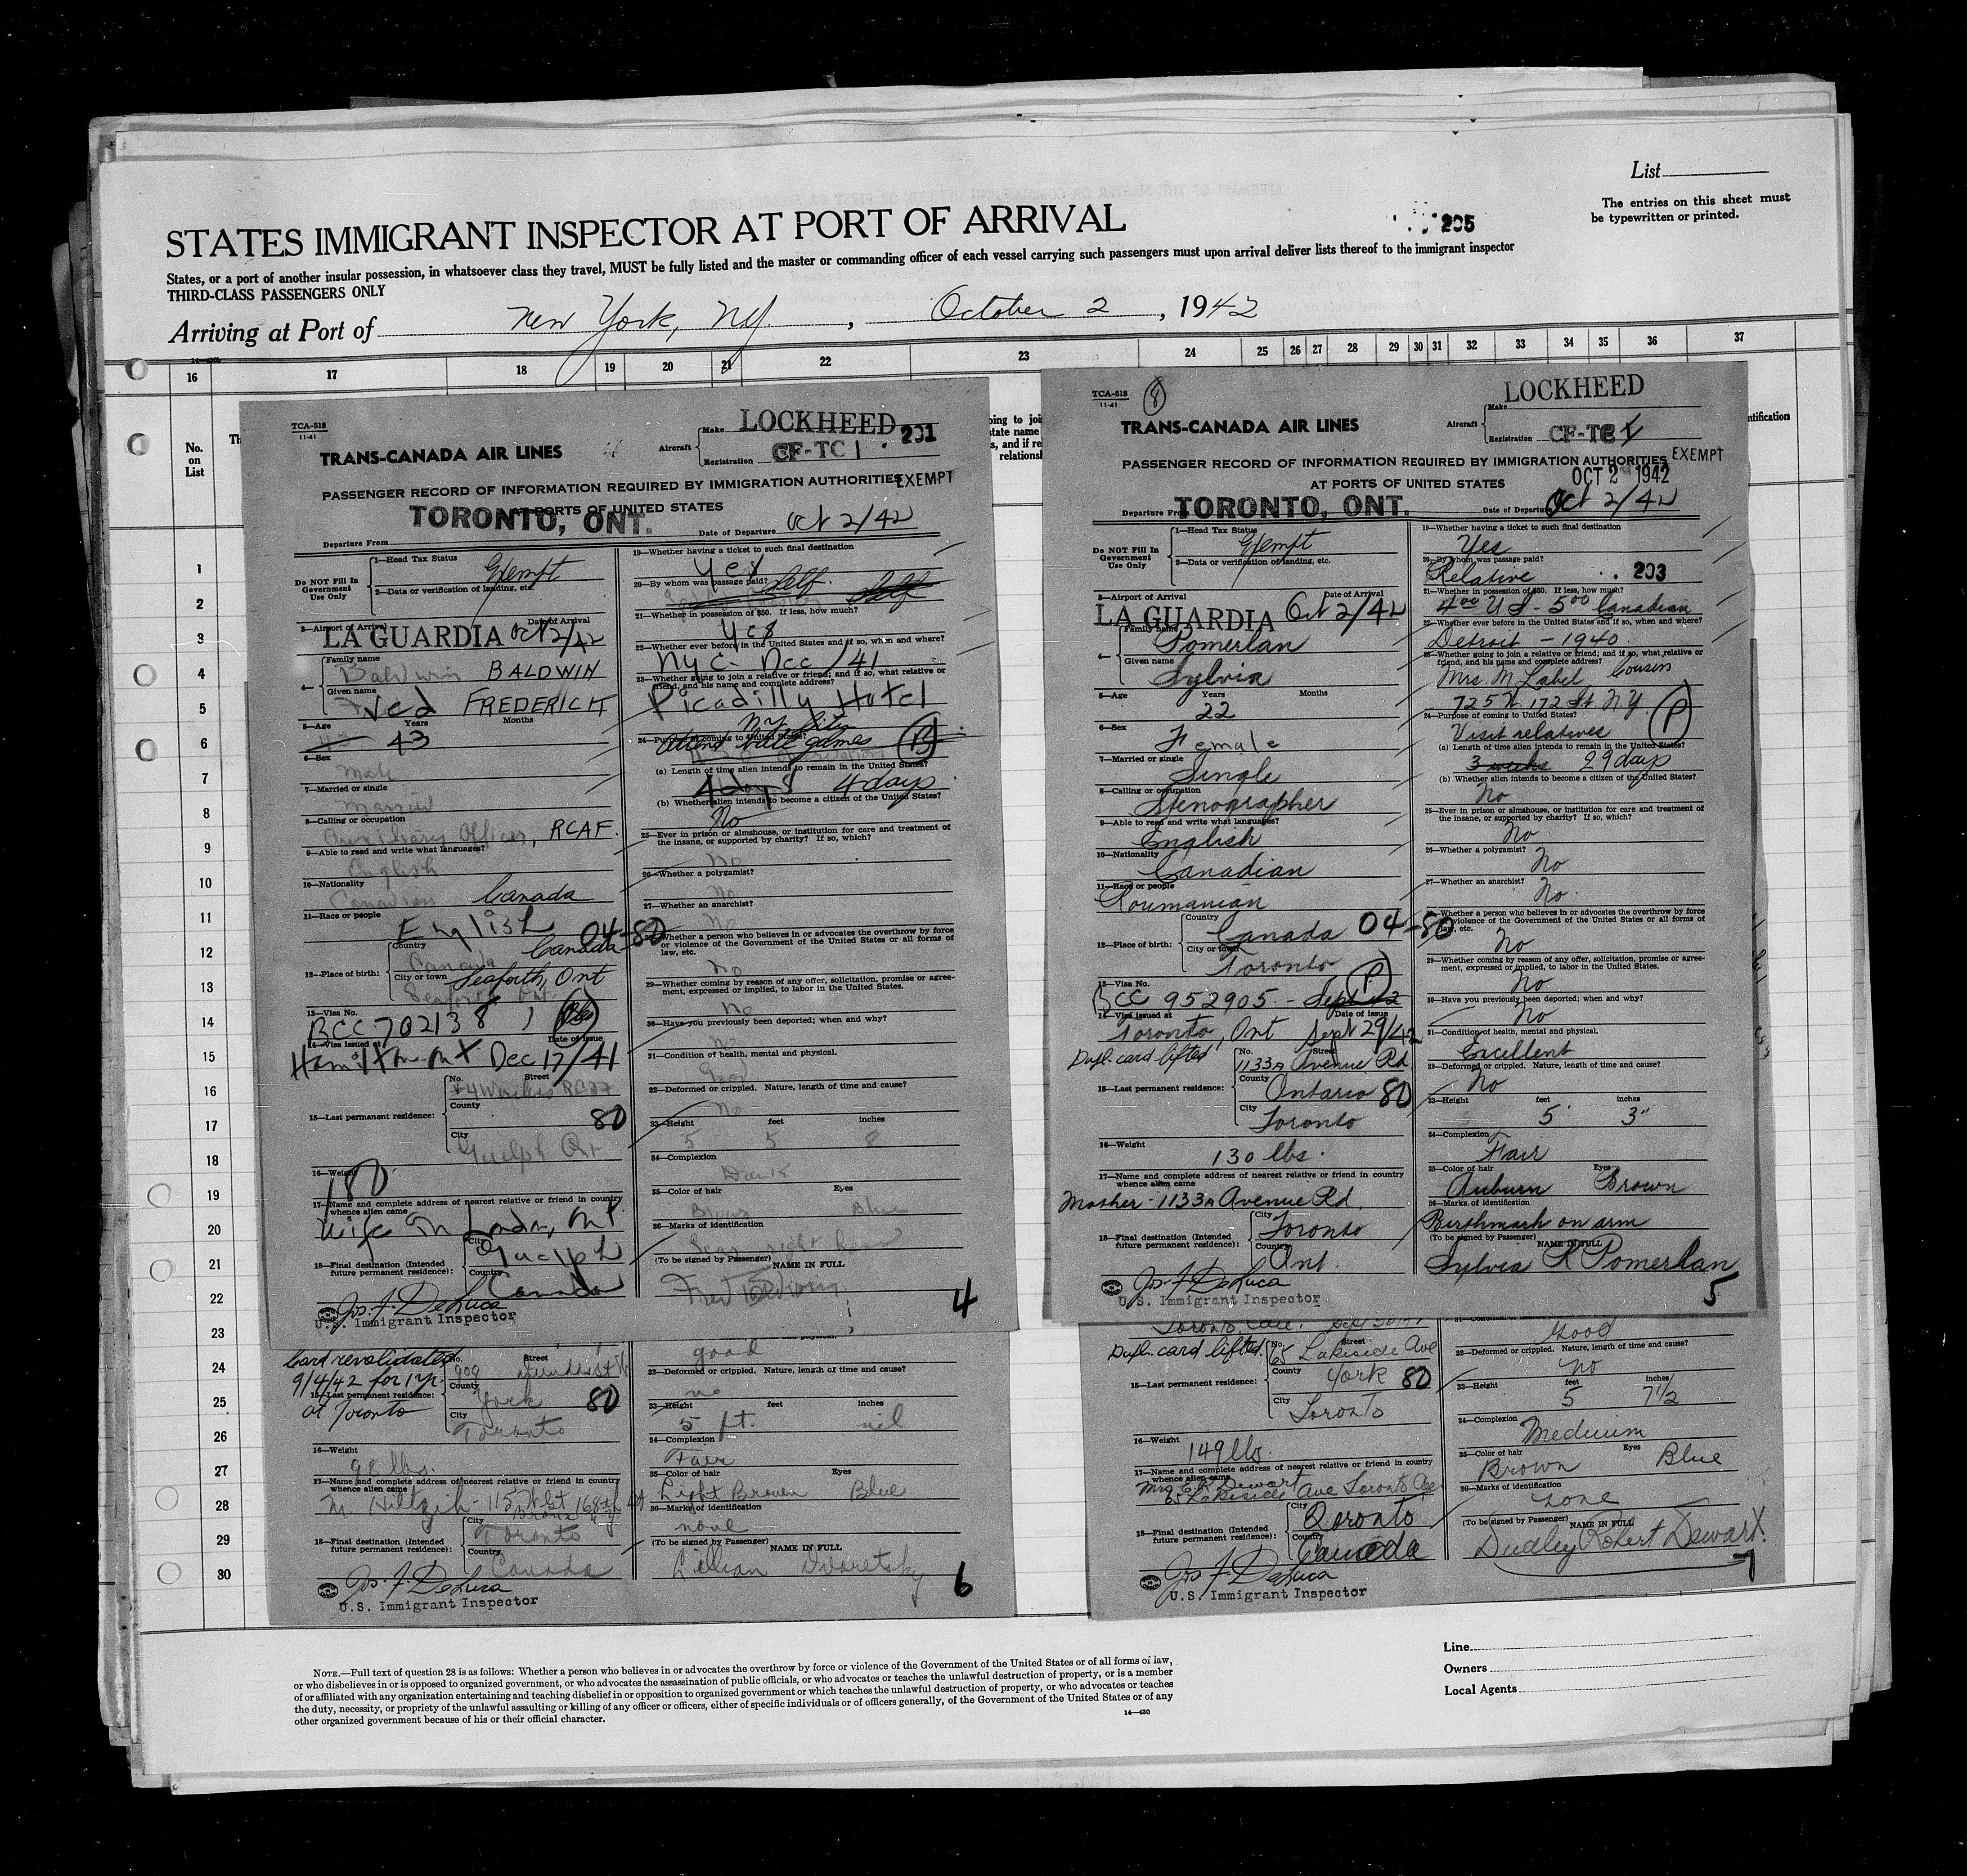 List
The entries on this sheet must
be typewritten or printed.
STATES IMMIGRANT INSPECTOR AT PORT OF ARRIVAL
205
States, or a port of another insular possession, in whatsoever class they travel, MUST be fully listed and the master or commanding officer of each vessel carrying such passengers must upon arrival deliver lists thereof to the immigrant inspector
THIRD-CLASS PASSENGERS ONLY
Arriving at Port of New York, NY. , October 2 , 1942
16 17 18 19 20 21 22 23 24 25 26 27 28 29 30 31 32 33 34 35 36 37
No.
on
List
1
2
3
4
5
6
7
8
9
10
11
12
13
14
15
16
17
18
19
20
21
22
23
24
25
26
27
28
29
30
TCA-518
11-41
TRANS-CANADA AIR LINES
Aircraft
Make LOCKHEED
Registration CF-TC 1
201
PASSENGER RECORD OF INFORMATION REQUIRED BY IMMIGRATION AUTHORITIES
EXEMPT
AT PORTS OF UNITED STATES
Departure From TORONTO, ONT.
Date of Departure Oct 2/42
Do NOT Fill In
Government
Use Only
1—Head Tax Status Exempt
2—Data or verification of landing, etc.
3—Airport of Arrival LA GUARDIA
Date of Arrival Oct 2/42
4—
Family name Baldwin BALDWIN
Given name Fred FREDERICK
5—Age Years Months
43
6—Sex
Male
7—Married or single
Married
8—Calling or occupation
Auxiliary Officer, RCAF.
9—Able to read and write what languages?
English
10—Nationality
Canadian Canada
11—Race or people
English
04-80
12—Place of birth:
Country Canada Canada
City or town Seaforth, Ont
Seaforth Ont.
13—Visa No.
BCC 702138
14—Visa issued at Date of issue
Hamilton Ont Dec 17/41
15—Last permanent residence:
No. Street
#4 Wireless RCAF
County 80
City Guelph Ont
16—Weight
180
17—Name and complete address of nearest relative or friend in country
whence alien came
Wife in London, Ont.
18—Final destination (Intended
future permanent residence):
City Guelph
Country Canada
Jos. F. DeLuca
U.S. Immigrant Inspector
19—Whether having a ticket to such final destination
Yes
20—By whom was passage paid? Self.
21—Whether in possession of $50. If less, how much?
Yes
22—Whether ever before in the United States and if so, when and where?
NYC - Dec /41
23—Whether going to join a relative or friend; and if so, what relative or
friend, and his name and complete address?
Picadilly Hotel
NY City
24—Purpose of coming to United States?
Attend ball games
(a) Length of time alien intends to remain in the United States?
4 days 4 days
(b) Whether alien intends to become a citizen of the United States?
No
25—Ever in prison or almshouse, or institution for care and treatment of
the insane, or supported by charity? If so, which?
No
26—Whether a polygamist?
No
27—Whether an anarchist?
No
Whether a person who believes in or advocates the overthrow by force
or violence of the Government of the United States or all forms of
law, etc.
No
29—Whether coming by reason of any offer, solicitation, promise or agree-
ment, expressed or implied, to labor in the United States.
No
30—Have you previously been deported; when and why?
No
31—Condition of health, mental and physical.
Good
32—Deformed or crippled. Nature, length of time and cause?
No
33—Height feet inches
5 8
34—Complexion
Dark
35—Color of hair Eyes
Brown Blue
36—Marks of identification
Scar right hand
(To be signed by Passenger) NAME IN FULL
Fred Baldwin
4
TCA-518
11-41
8
TRANS-CANADA AIR LINES
Aircraft
Make LOCKHEED
Registration CF-TC
PASSENGER RECORD OF INFORMATION REQUIRED BY IMMIGRATION AUTHORITIES
EXEMPT
AT PORTS OF UNITED STATES
OCT 2 1942
Departure From TORONTO, ONT.
Date of Departure Oct 2/42
Do NOT Fill In
Government
Use Only
1—Head Tax Status Exempt
2—Data or verification of landing, etc.
3—Airport of Arrival LA GUARDIA
Date of Arrival Oct 2/42
4—
Family name Pomerlan
Given name Sylvia
5—Age Years Months
22
6—Sex
Female
7—Married or single
Single
8—Calling or occupation
Stenographer
9—Able to read and write what languages?
English
10—Nationality
Canadian
11—Race or people
Roumanian
12—Place of birth:
Country Canada 04-80
City or town Toronto
13—Visa No.
BCC 952905 - Sept 42
P
14—Visa issued at Date of issue
Toronto, Ont Sept 29/42
Dupl. card lifted
15—Last permanent residence:
No. Street 1133A Avenue Rd
County Ontario 80
City Toronto
16—Weight
130 lbs.
17—Name and complete address of nearest relative or friend in country
whence alien came
Mother - 1133A Avenue Rd.
18—Final destination (Intended
future permanent residence):
City Toronto
Country Ont.
Jos. F. DeLuca
U.S. Immigrant Inspector
19—Whether having a ticket to such final destination
Yes
20—By whom was passage paid?
Relative
203
21—Whether in possession of $50. If less, how much?
4.00 US - 5.00 Canadian
22—Whether ever before in the United States and if so, when and where?
Detroit - 1940.
23—Whether going to join a relative or friend; and if so, what relative or
friend, and his name and complete address?
Mrs. M. Label Cousin
725 W. 172 St NY.
P
24—Purpose of coming to United States?
Visit relatives
(a) Length of time alien intends to remain in the United States?
3 weeks 29 days
(b) Whether alien intends to become a citizen of the United States?
No
25—Ever in prison or almshouse, or institution for care and treatment of
the insane, or supported by charity? If so, which?
No
26—Whether a polygamist?
No
27—Whether an anarchist?
No.
Whether a person who believes in or advocates the overthrow by force
or violence of the Government of the United States or all forms of
law, etc.
No
29—Whether coming by reason of any offer, solicitation, promise or agree-
ment, expressed or implied, to labor in the United States.
No
30—Have you previously been deported; when and why?
No
31—Condition of health, mental and physical.
Excellent
32—Deformed or crippled. Nature, length of time and cause?
No
33—Height feet inches
5' 3"
34—Complexion
Fair
35—Color of hair Eyes
Auburn Brown
36—Marks of identification
Birthmark on arm
(To be signed by Passenger) NAME IN FULL
Sylvia R Pomerlan
5
Card revalidated
9/4/42 for 1 yr.
at Toronto
15—Last permanent residence:
No. Street
909 Dundas St W
County York 80
City Toronto
16—Weight
98 lbs.
17—Name and complete address of nearest relative or friend in country
whence alien came
115 West 168th St
Bronx N.Y.
18—Final destination (Intended
future permanent residence):
City Toronto
Country Canada
Jos. F. DeLuca
U.S. Immigrant Inspector
good
32—Deformed or crippled. Nature, length of time and cause?
no
33—Height feet inches
5 ft. nil
34—Complexion
Fair
35—Color of hair Eyes
Light Brown Blue
36—Marks of identification
none
(To be signed by Passenger) NAME IN FULL
Lillian Dvoretsky
6
Dupl. card lifted
15—Last permanent residence:
No. Street
65 Lakeside Ave
County York 80
City Toronto
16—Weight
149 lbs.
17—Name and complete address of nearest relative or friend in country
whence alien came
Mrs Dewart
65 Lakeside Ave Toronto
18—Final destination (Intended
future permanent residence):
City Toronto
Country Canada
Jos. F. DeLuca
U.S. Immigrant Inspector
Good
32—Deformed or crippled. Nature, length of time and cause?
No
33—Height feet inches
5 7 1/2
34—Complexion
Medium
35—Color of hair Eyes
Brown Blue
36—Marks of identification
None
(To be signed by Passenger) NAME IN FULL
Dudley Robert Dewart.
7
NOTE.—Full text of question 28 is as follows: Whether a person who believes in or advocates the overthrow by force or violence of the Government of the United States or of all forms of law,
or who disbelieves in or is opposed to organized government, or who advocates the assassination of public officials, or who advocates or teaches the unlawful destruction of property, or is a member
of or affiliated with any organization entertaining and teaching disbelief in or opposition to organized government or which teaches the unlawful destruction of property, or who advocates or teaches
the duty, necessity, or propriety of the unlawful assaulting or killing of any officer or officers, either of specific individuals or of officers generally, of the Government of the United States or of any
other organized government because of his or their official character.
14—430
Line
Owners
Local Agents